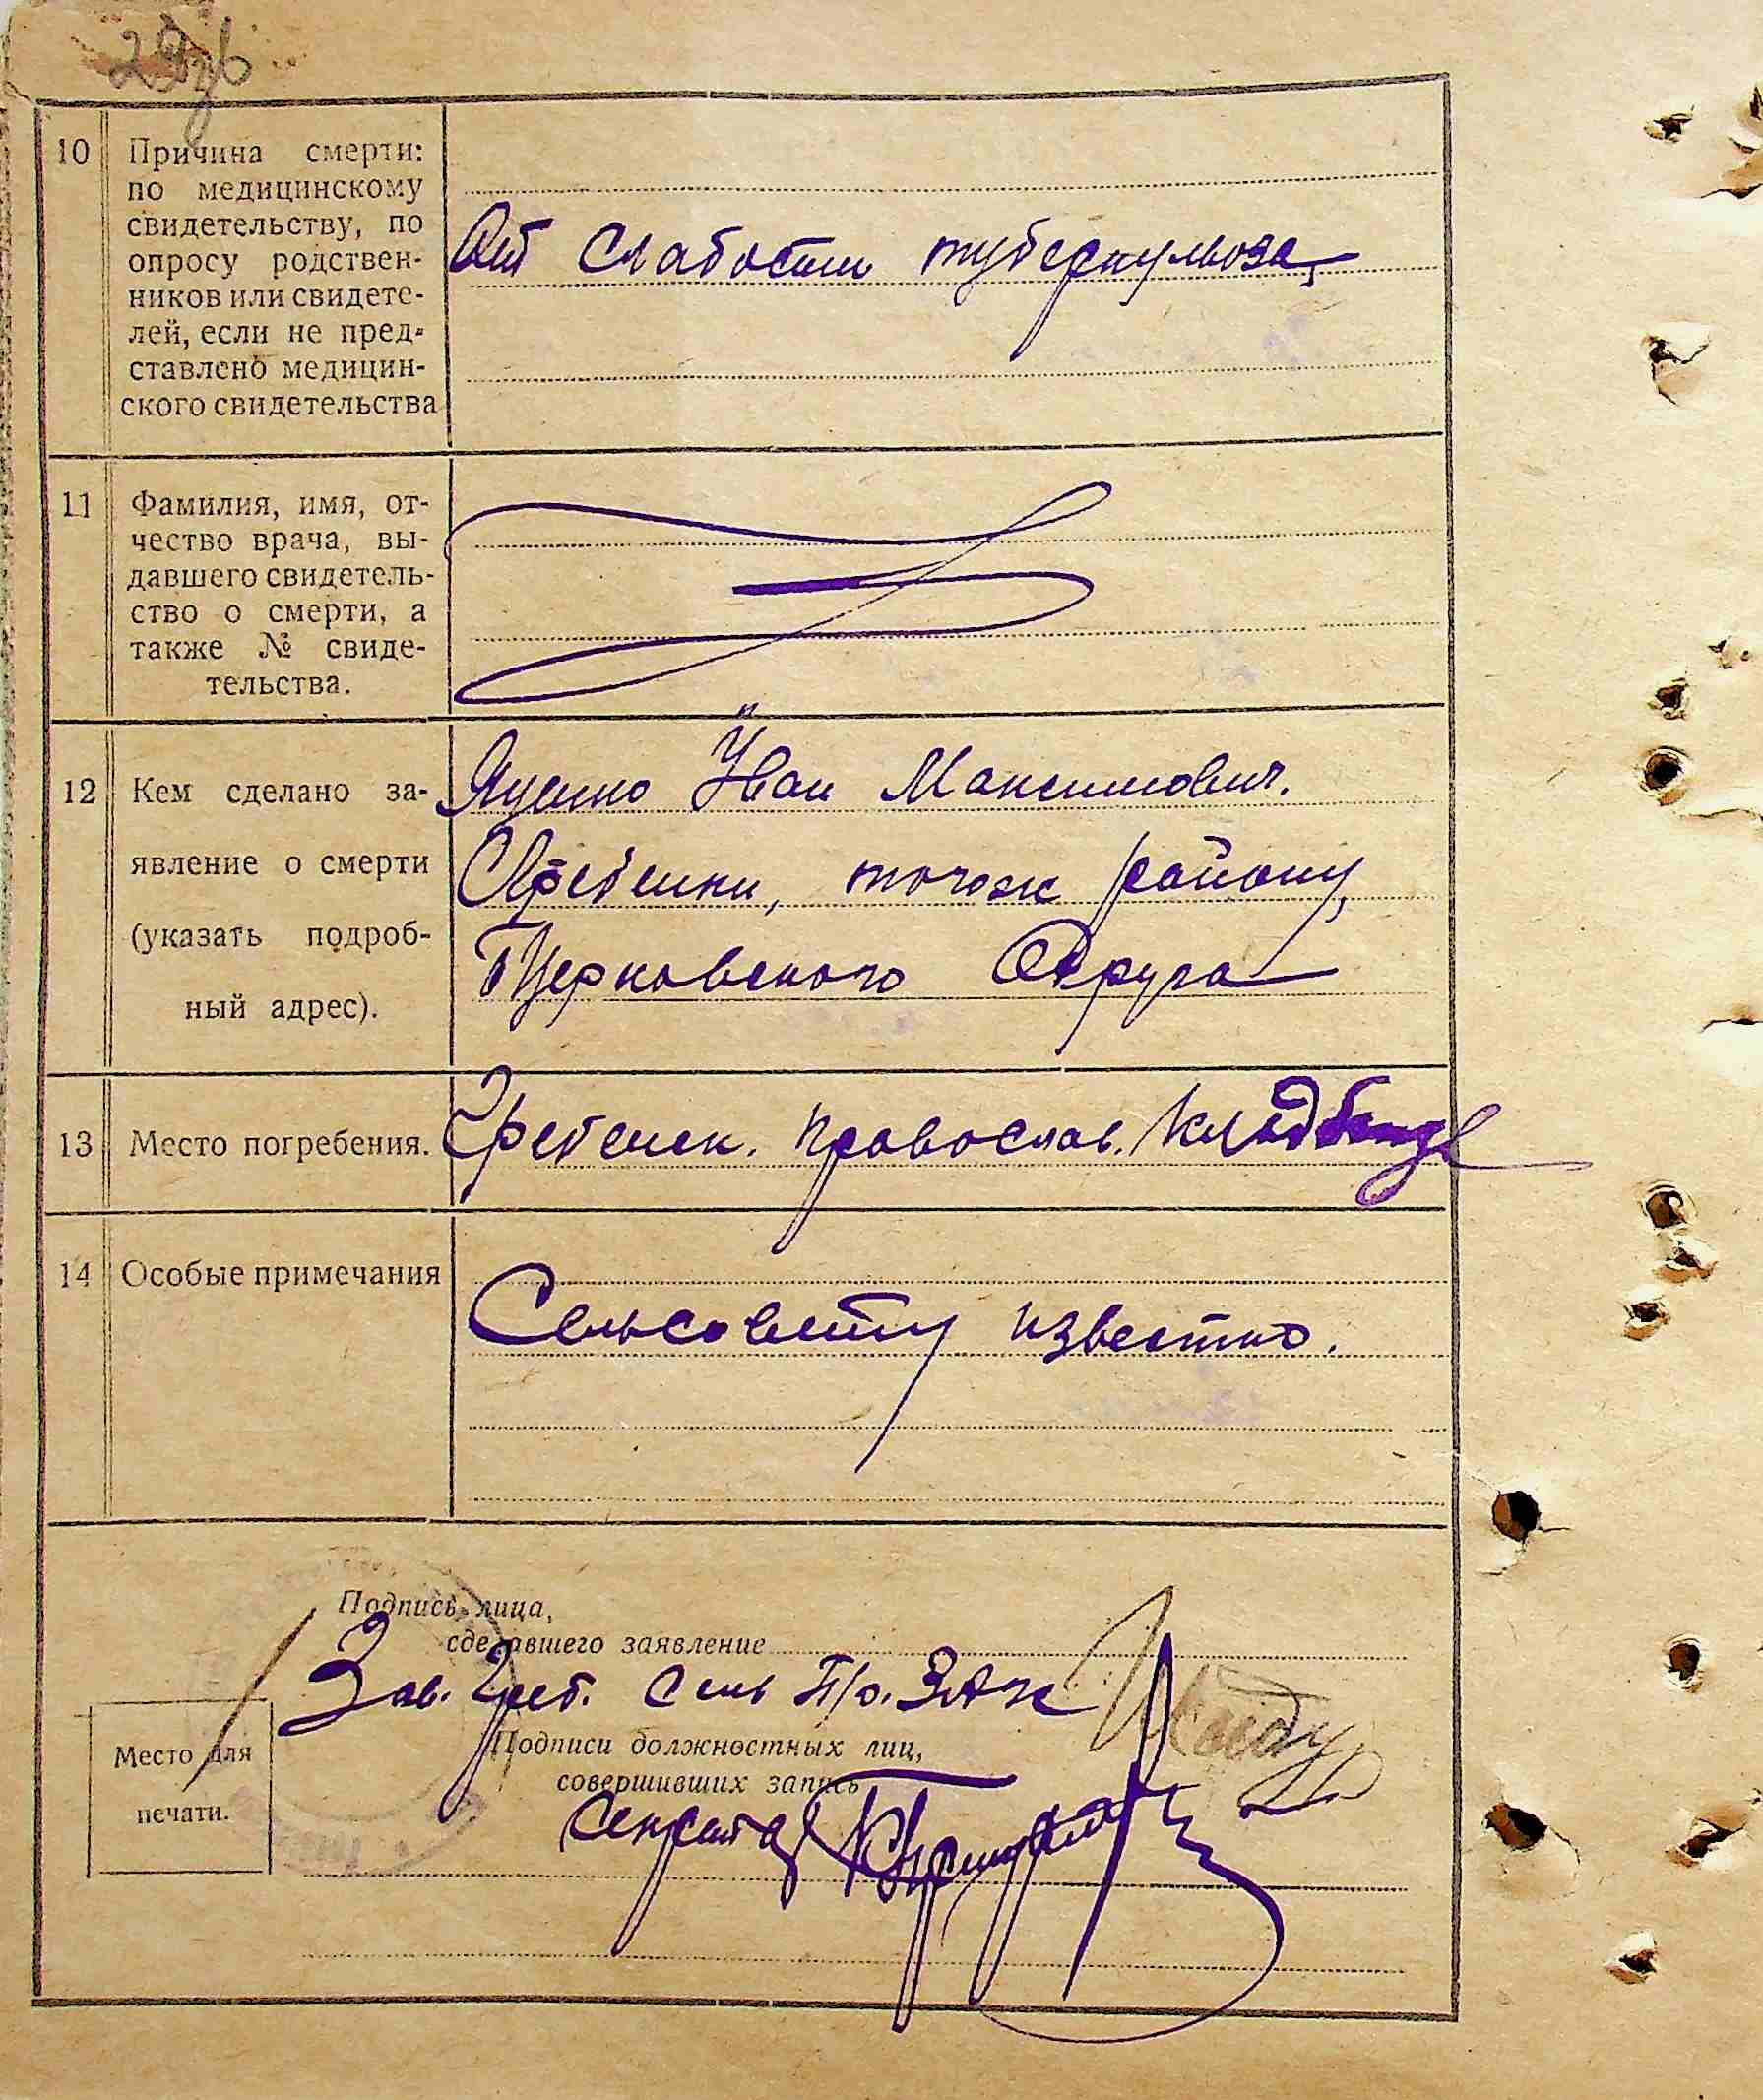 10 Причина смерти:
по медицинскому
свидетельству, по
опросу родствен-
ников или свидете-
лей, если не пред-
ставлено медицин-
ского свидетельства
От слабости туберкульоза
11 Фамилия, имя, от-
чество врача, вы-
давшего свидетель-
ство о смерти, а
также № свиде-
тельства.
12 Кем сделано за-
явление о смерти
(указать подроб-
ный адрес).
Яценко Иван Максимович.
С. Гребенки, тогож району,
Б Церковского Округа
13 Место погребения.
Гребенск. православ. кладбище
14 Особые примечания
Сельсовету известно.
Подпись лица,
сделавшего заявление
Зав. Греб. Сель
Подписи должностных лиц,
совершивших запись
Секретарь
Место для
печати.